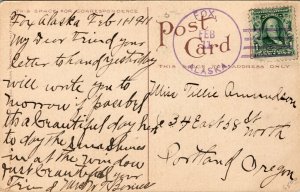 THIS SPACE FOR CORRESPONDENCE
Fox Alaska Feb 1 1911
My dear Friend your
letter to hand yesterday
will write you to
morrow if possible
this beautiful day here
to day the sun shines
in at the window
just beautiful your
Post
Card
THIS SIDE FOR ADDRESS ONLY
FOX
FEB
ALASKA
Miss Tillie
East 38 St
North
Portland Oregon